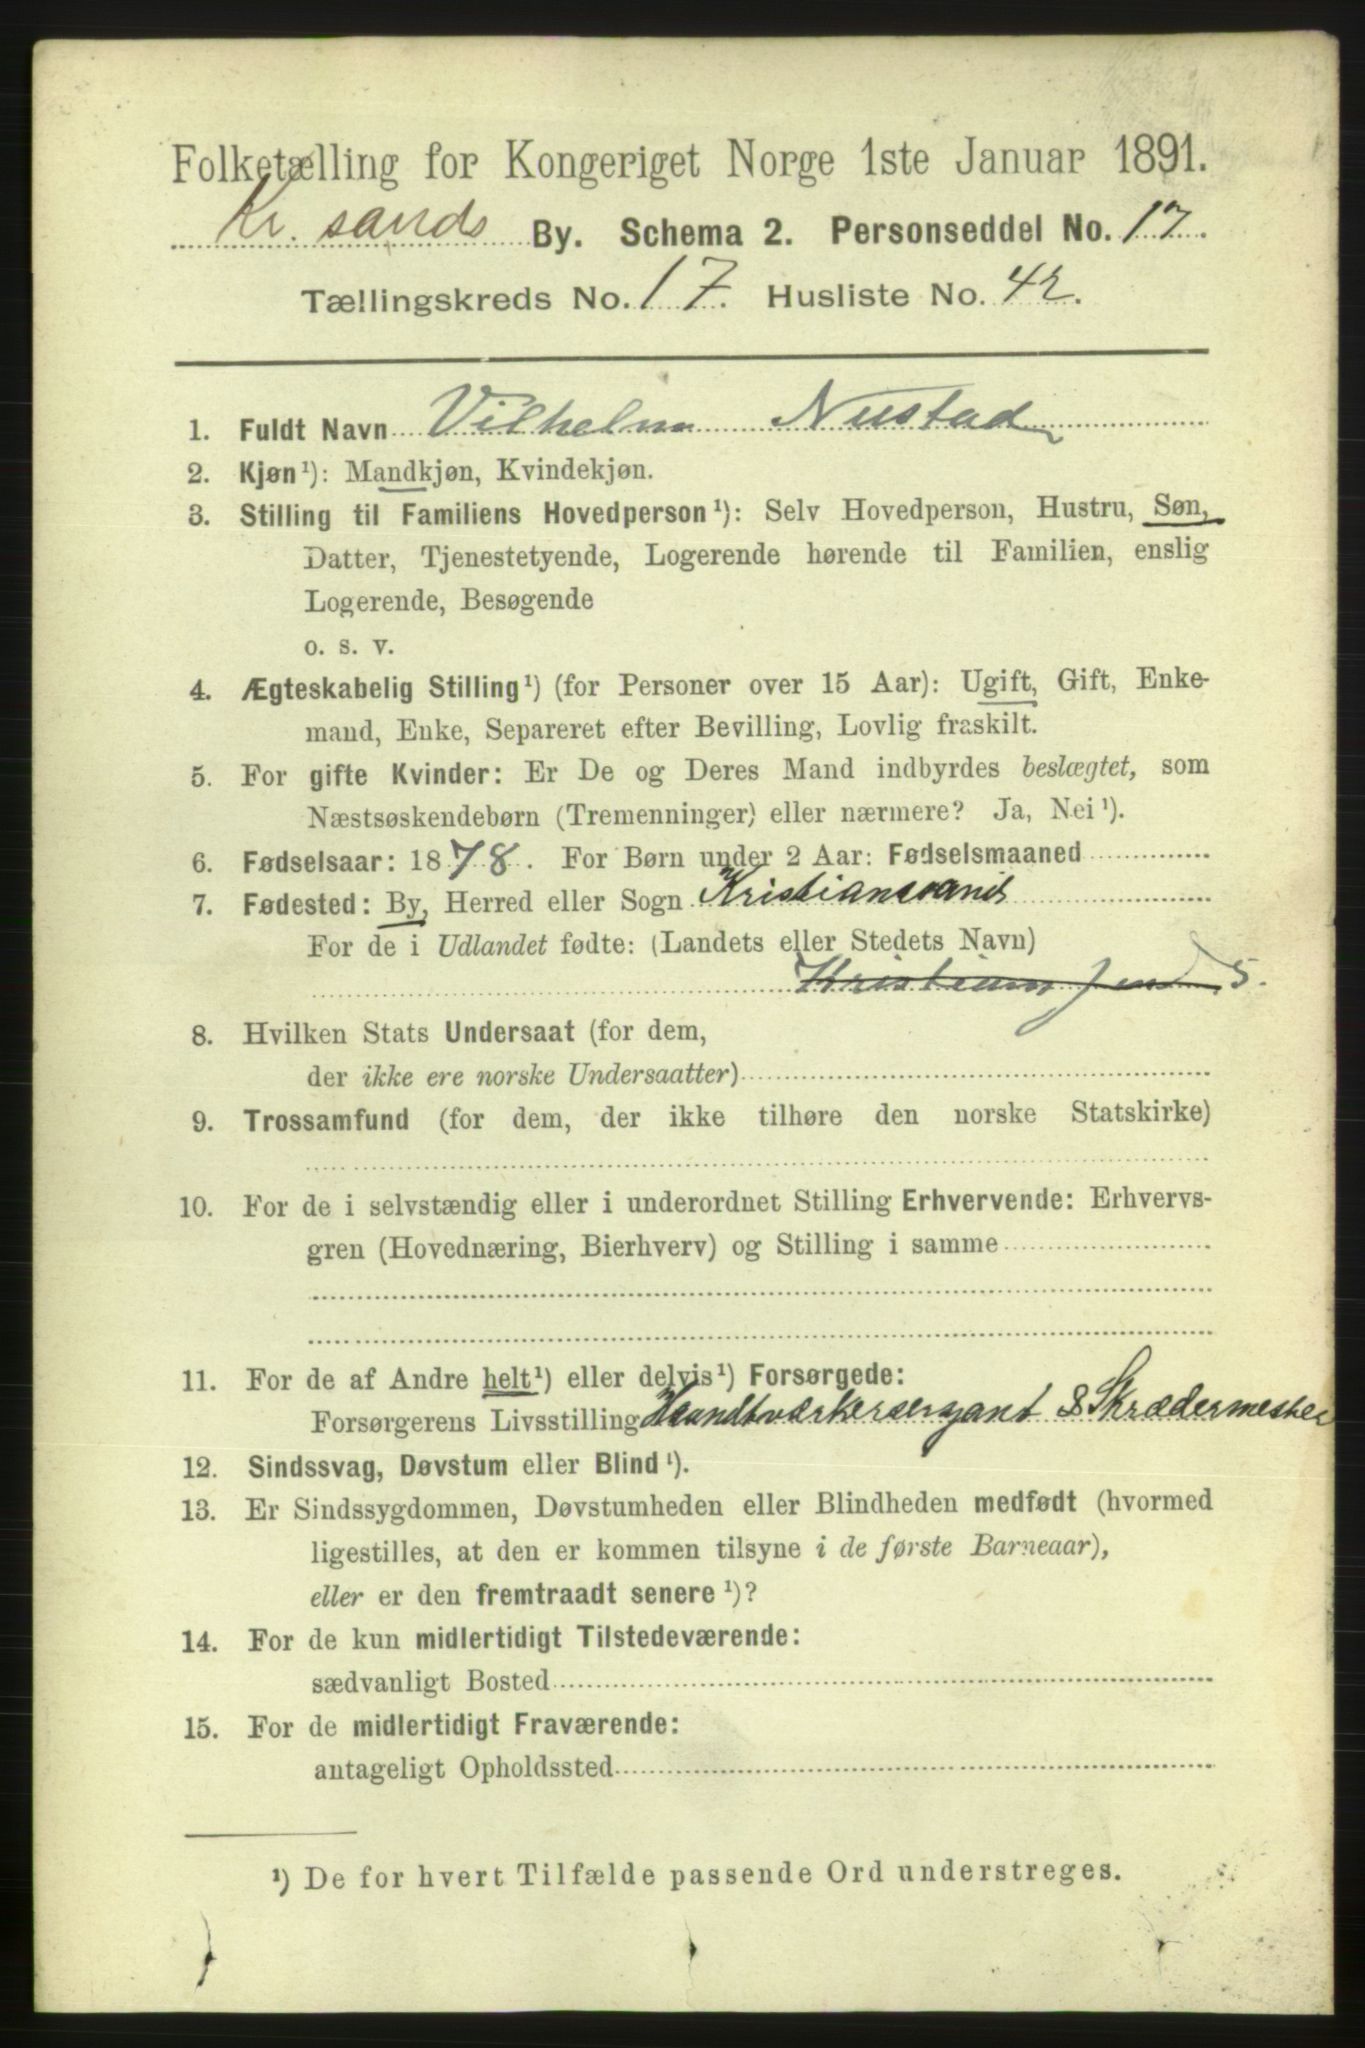 Folketælling for Kongeriget Norge 1ste Januar 1891.
Kr. sands By. Schema 2. Personseddel No. 17.
Tællingskreds No. 17. Husliste No. 42.
1. Fuldt Navn Vilhelm Nustad
2. Kjøn¹): Mandkjøn, Kvindekjøn.
3. Stilling til Familiens Hovedperson¹): Selv Hovedperson, Hustru, Søn,
Datter, Tjenestetyende, Logerende hørende til Familien, enslig
Logerende, Besøgende
o. s. v.
4. Ægteskabelig Stilling¹) (for Personer over 15 Aar): Ugift, Gift, Enke-
mand, Enke, Separeret efter Bevilling, Lovlig fraskilt.
5. For gifte Kvinder: Er De og Deres Mand indbyrdes beslægtet, som
Næstsøskendebørn (Tremenninger) eller nærmere? Ja, Nei¹).
6. Fødselsaar: 1878. For Børn under 2 Aar: Fødselsmaaned
7. Fødested: By, Herred eller Sogn Kristianssand
For de i Udlandet fødte: (Landets eller Stedets Navn)
5.
8. Hvilken Stats Undersaat (for dem,
der ikke ere norske Undersaatter)
9. Trossamfund (for dem, der ikke tilhøre den norske Statskirke)
10. For de i selvstændig eller i underordnet Stilling Erhvervende: Erhvervs-
gren (Hovednæring, Bierhverv) og Stilling i samme
11. For de af Andre helt¹) eller delvis¹) Forsørgede:
Forsørgerens Livsstilling Haandtværkersergjant & Skrædermester
12. Sindssvag, Døvstum eller Blind¹).
13. Er Sindssygdommen, Døvstumheden eller Blindheden medfødt (hvormed
ligestilles, at den er kommen tilsyne i de første Barneaar),
eller er den fremtraadt senere¹)?
14. For de kun midlertidigt Tilstedeværende:
sædvanligt Bosted
15. For de midlertidigt Fraværende:
antageligt Opholdssted
¹) De for hvert Tilfælde passende Ord understreges.